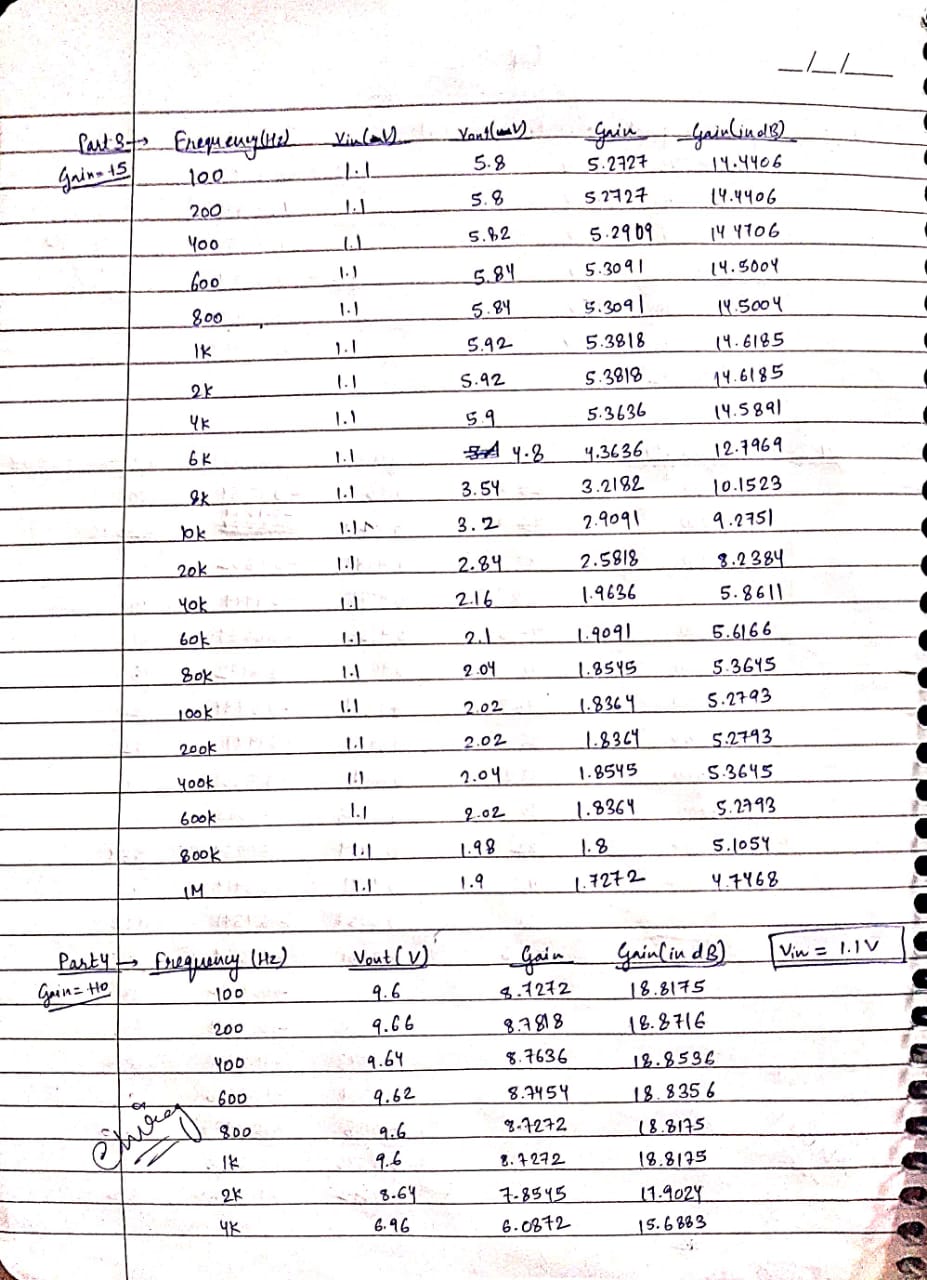 _/_/_
Part 3 → Frequency (Hz) Vin (mV) Vout (mV) Gain Gain (in dB)
Gain = +5 100 1.1 5.8 5.2727 14.4406
200 1.1 5.8 5.2727 14.4406
400 1.1 5.82 5.2909 14.4706
600 1.1 5.84 5.3091 14.5004
800 1.1 5.84 5.3091 14.5004
1K 1.1 5.92 5.3818 14.6185
2K 1.1 5.92 5.3818 14.6185
4K 1.1 5.9 5.3636 14.5891
6K 1.1 4.8 4.3636 12.7969
8K 1.1 3.54 3.2182 10.1523
10k 1.1 3.2 2.9091 9.2751
20k 1.1 2.84 2.5818 8.2384
40k 1.1 2.16 1.9636 5.8611
60k 1.1 2.1 1.9091 5.6166
80k 1.1 2.04 1.8545 5.3645
100k 1.1 2.02 1.8364 5.2793
200k 1.1 2.02 1.8364 5.2793
400k 1.1 2.04 1.8545 5.3645
600k 1.1 2.02 1.8364 5.2793
800k 1.1 1.98 1.8 5.1054
1M 1.1 1.9 1.7272 4.7468
Part 4 → Frequency (Hz) Vout (V) Gain Gain (in dB) Vin = 1.1V
Gain = +10 100 9.6 8.7272 18.8175
200 9.66 8.7818 18.8716
400 9.64 8.7636 18.8536
600 9.62 8.7454 18.8356
800 9.6 8.7272 18.8175
1K 9.6 8.7272 18.8175
2K 8.64 7.8545 17.9024
4K 6.96 6.0872 15.6883